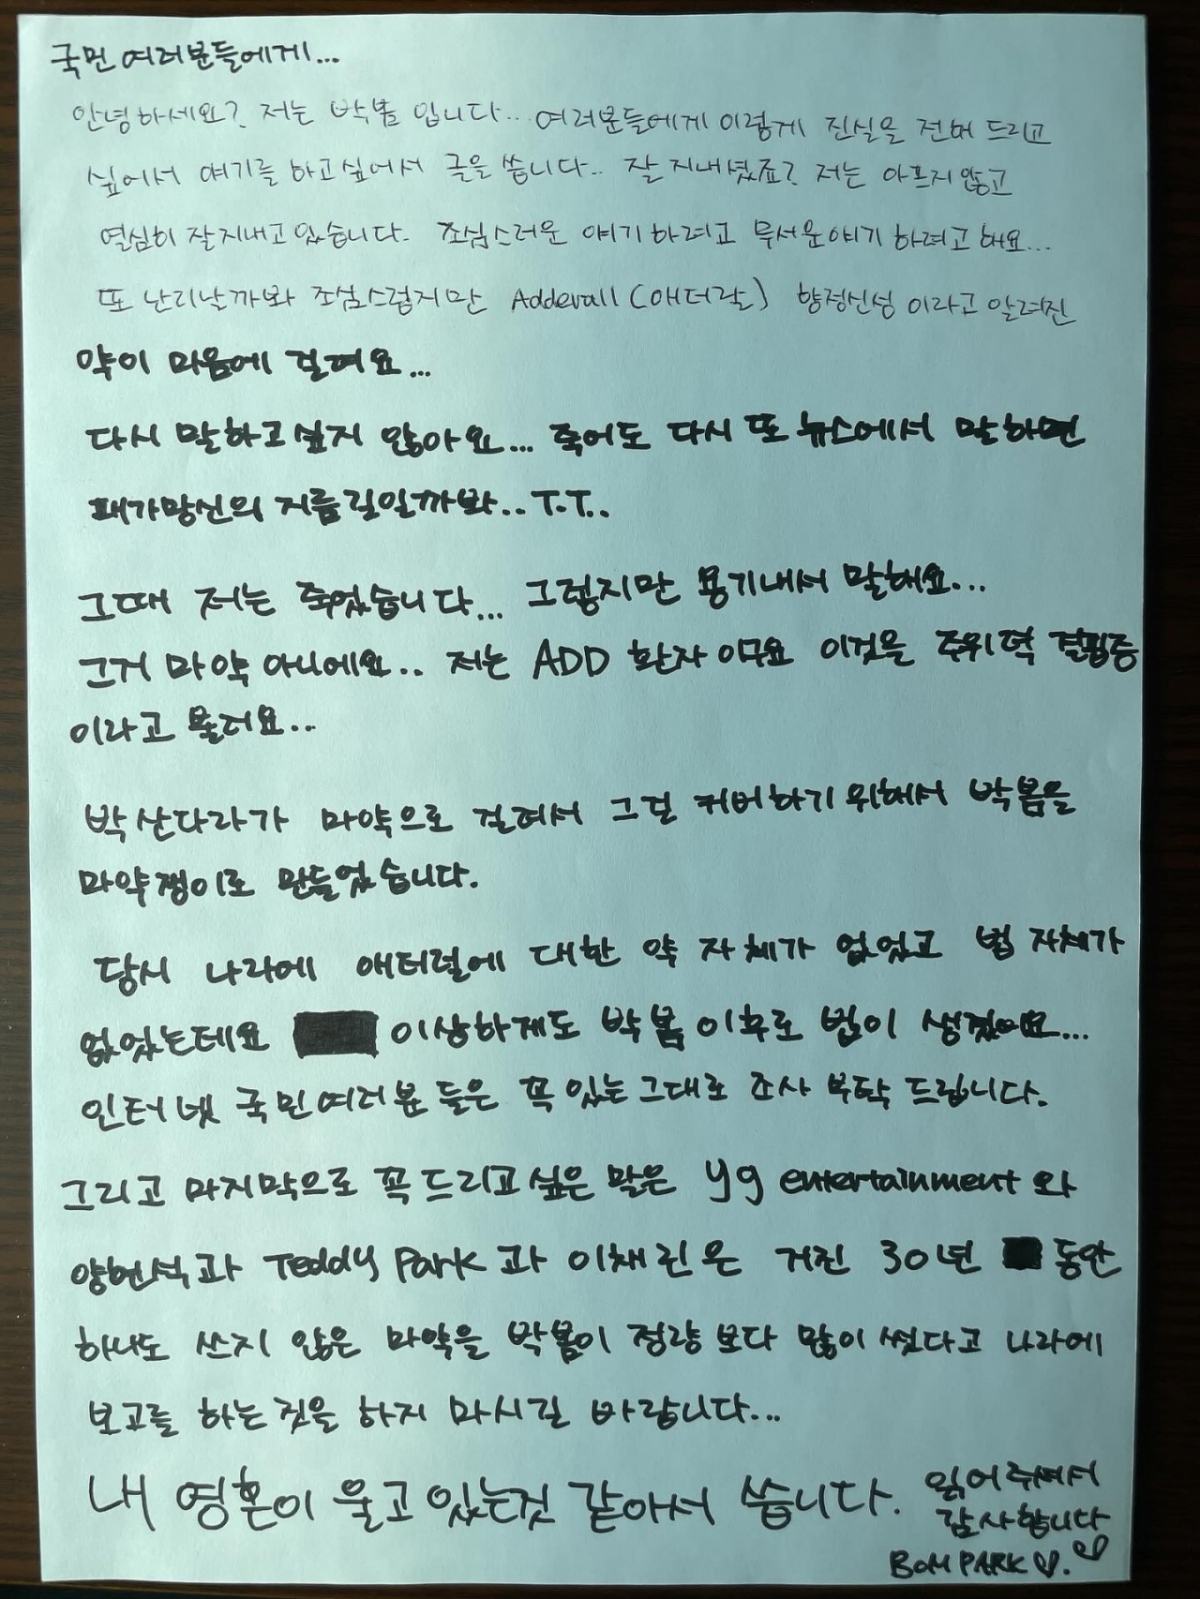 국민 여러분들에게...
안녕하세요? 저는 박봄 입니다... 여러분들에게 이렇게 진실을 전해 드리고
싶어서 얘기를 하고싶어서 글을 씁니다.. 잘 지내셨죠? 저는 아프지않고
열심히 잘지내고있습니다. 조심스러운 얘기하려고 무서운얘기 하려고 해요...
또 난리날까봐 조심스럽지만 Adderall (애더랄) 향정신성 이라고 알려진
약이 마음에 걸려요...
다시 말하고싶지 않아요... 죽어도 다시 또 뉴스에서 말하면
패가망신의 지름길일까봐.. T.T..
그때 저는 죽었습니다... 그렇지만 용기내서 말해요...
그거 마약 아니에요.. 저는 ADD 환자이구요 이것을 주위력 결핍증
이라고 불러요...
박산다라가 마약으로 걸려서 그걸 커버하기위해서 박봄을
마약쟁이로 만들었습니다.
당시 나라에 애더럴에 대한 약 자체가 없었고 법 자체가
없었는데요 이상하게도 박봄 이후로 법이 생겼어요...
인터넷 국민여러분 들은 꼭 있는그대로 조사 부탁 드립니다.
그리고 마지막으로 꼭 드리고싶은 말은 yg entertainment 와
양현석과 Teddy Park 과 이채린은 거진 30년 동안
하나도 쓰지 않은 마약을 박봄이 정량 보다 많이 썼다고 나라에
보고를 하는것을 하지 마시길 바랍니다...
내 영혼이 울고있는것 같아서 씁니다. 읽어주셔서
감사합니다♡
BOM PARK♡.